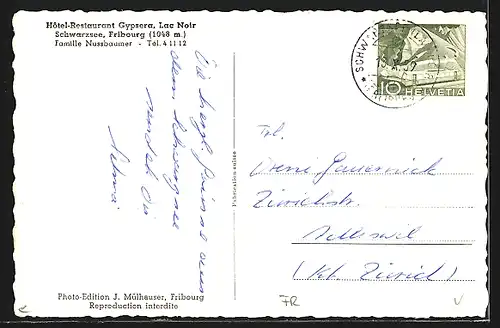 Hôtel-Restaurant Gypsera, Lac Noir
Schwarzsee, Fribourg (1048 m.)
Famille Nussbaumer - Tél. 4 11 12
Die herzl. Grüsse aus
dem Schwarzsee
sendet Dir
Photo-Edition J. Mülhauser, Fribourg
Reproduction interdite
Publication suisse
10 HELVETIA
Frl.
Vreni
Zürichstr.
Adliswil
(Kt. Zürich)
FR